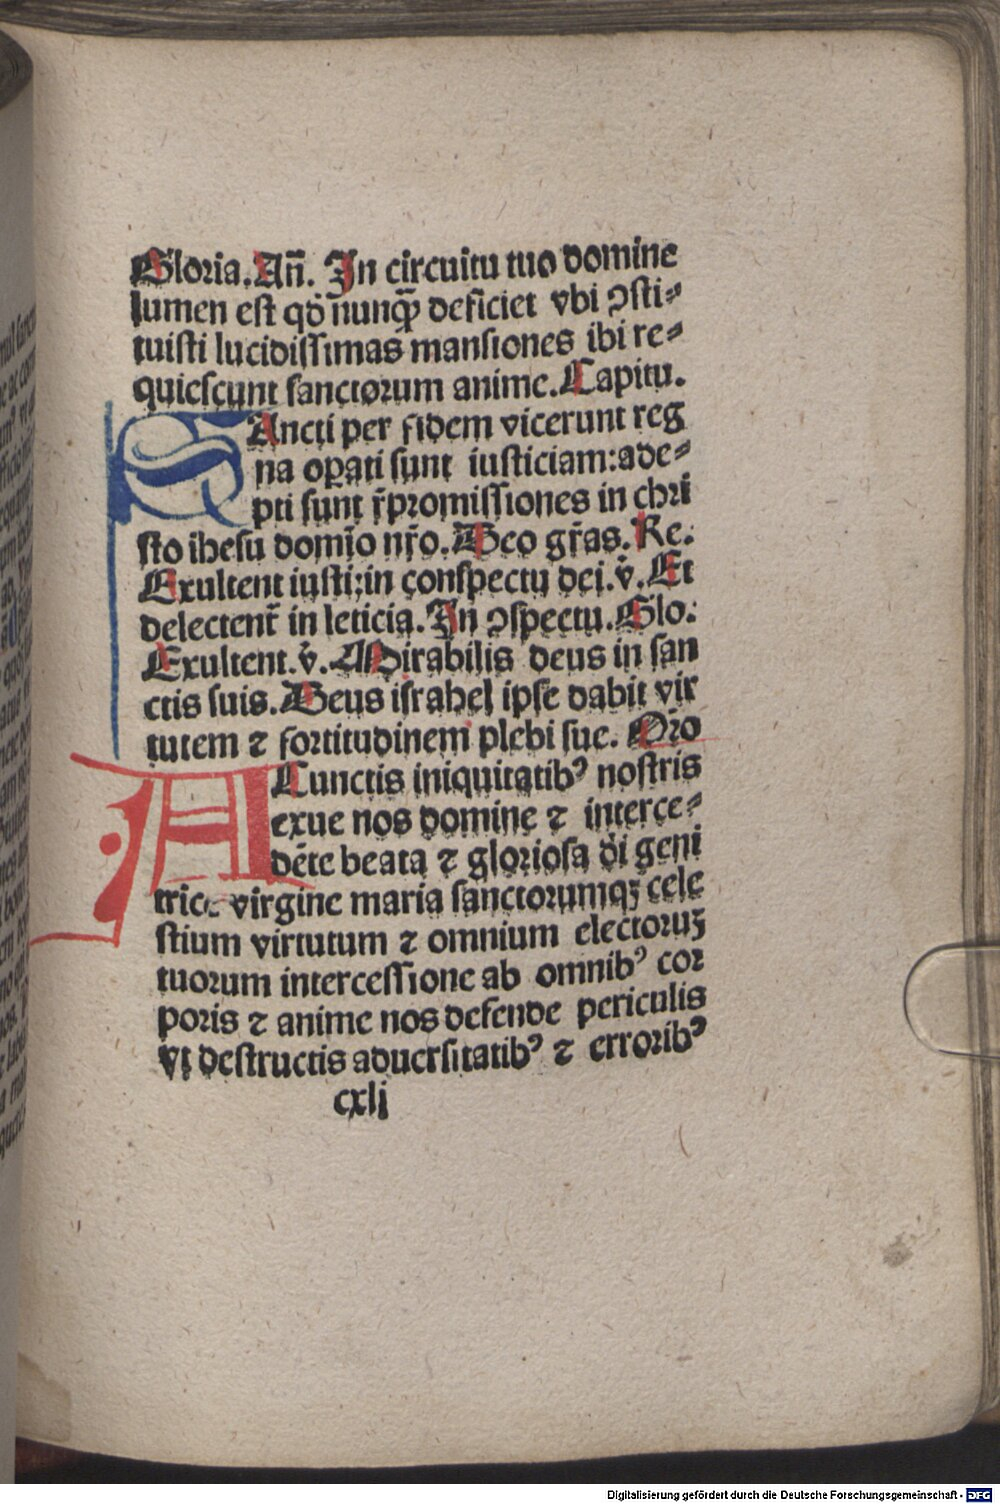 Gloria. An̄. In circuitu tuo domine
lumen est qd̄ nunqͣ̄ deficiet vbi ꝯsti⸗
tuisti lucidissimas mansiones ibi re⸗
quiescunt sanctorum anime. Capitu.
SAncti per fidem vicerunt reg
na oꝑati sunt iusticiam: ade⸗
pti sunt r̄promissiones in chri
sto ihesu domīo nr̄o. Deo gr̄as. Re.
Exultent iusti; in conspectu dei. v̇. Et
delectent̄ in leticia. In ꝯspectu. Glo.
Exultent. v̇. Mirabilis deus in san
ctis suis. Deus israhel ipse dabit vir
tutem ⁊ fortitudinem plebi sue. Oro
A Cunctis iniquitatibꝰ nostris
exue nos domine ⁊ interce⸗
dēte beata ⁊ gloriosa dī geni
trice virgine maria sanctorumqꝫ cele
stium virtutum ⁊ omnium electoruꝫ
tuorum intercessione ab omnibꝰ cor
poris ⁊ anime nos defende periculis
Vt destructis aduersitatibꝰ ⁊ erroribꝰ
cxli
Digitalisierung gefördert durch die Deutsche Forschungsgemeinschaft - DFG